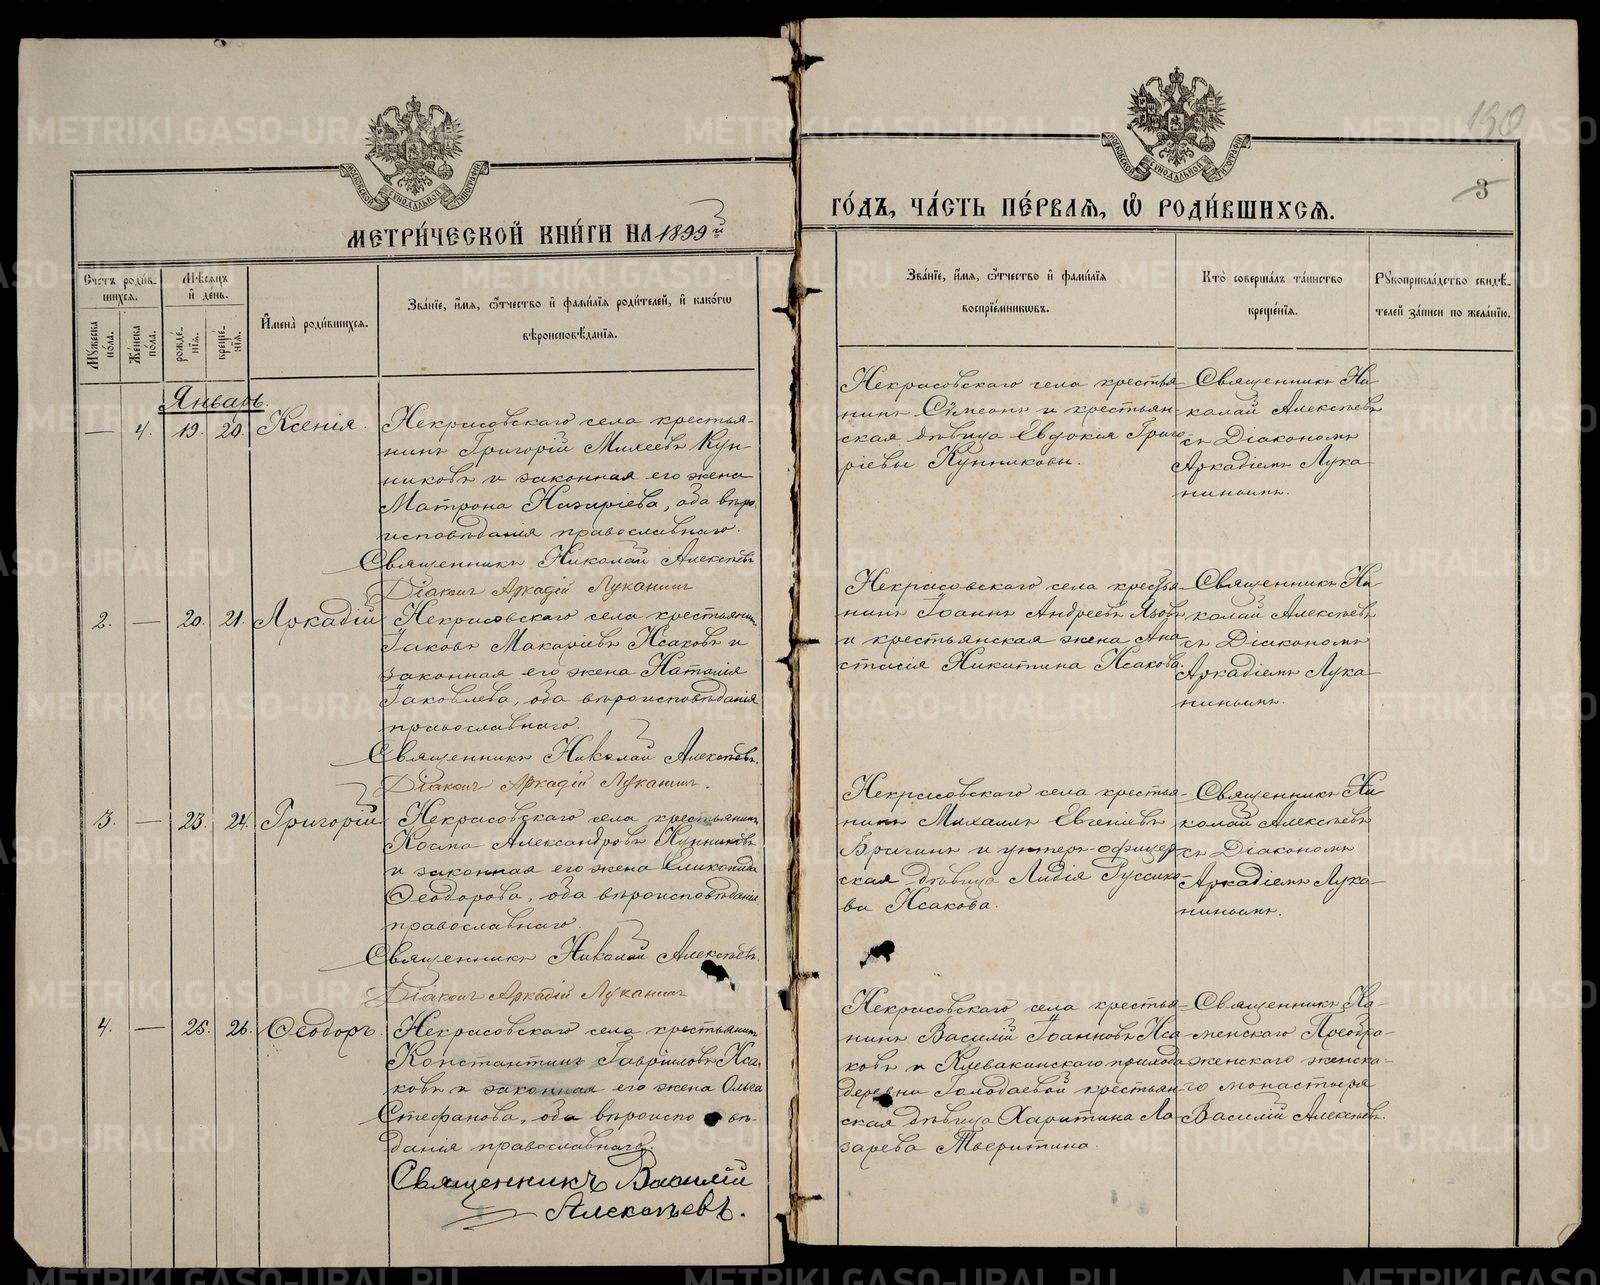 130
3
МЕТРИ́ЧЕСКОЙ КНИ́ГИ НА 1899й
ГО́ДЪ, ЧА́СТЬ ПЕ́РВАЯ, Ѡ РОДИ́ВШИХСЯ.
Сче́тъ роди́в-
шихся.
Мѣ́сяцъ
и҆ день.
Мꙋ́жеска
по́ла.
Же́нска
по́ла.
рожде́-
нїя.
креще́-
нїя.
И҆мена̀ роди́вшихся.
Зва́нїе, и҆́мя, ѻ҆́тчество и҆ фами́лїя роди́телей, и҆ како́гѡ
вѣроисповѣ́данїя.
Зва́нїе, и҆́мя, ѻ҆́тчество и҆ фами́лїя
воспрїе́мниковъ.
Кто̀ соверша́лъ та́инство
креще́нїя.
Рꙋкоприкла́дство свидѣ́-
телей за́писи по жела́нїю.
Январь.
— 4. 19. 20. Ксенія.
Некрасовскаго села крестья-
нинъ Григорій Михеевъ Кун-
никовъ и законная его жена
Матрона Назаріева, оба вѣро
исповѣданія православнаго.
Священникъ Николай Алексѣевъ
Діаконъ Аркадій Луканинъ
Некрасовскаго села крестья-
нинъ Сѵмеонъ и крестьян
ская дѣвица Евдокія Григо-
ріевы Кунниковы.
Священникъ Ни
колай Алексѣевъ
съ Діакономъ
Аркадіемъ Лука
нинымъ.
2. — 20. 21. Аркадій
Некрасовскаго села крестьянинъ
Іаковъ Макаріевъ Исаковъ и
законная его жена Наталія
Іаковлева, оба вѣроисповѣданія
православнаго.
Священникъ Николай Алексѣевъ.
Діаконъ Аркадій Луканинъ.
Некрасовскаго села крестья-
нинъ Іоаннъ Андреевъ
и крестьянская жена Ана
стасія Никитина Исакова.
Священникъ Ни
колай Алексѣевъ
съ Діакономъ
Аркадіемъ Лука-
нинымъ.
3. — 23. 24. Григорій
Некрасовскаго села крестьянинъ
Косма Александровъ Кунниковъ
и законная его жена Еликонида
Ѳеодорова, оба вѣроисповѣданія
православнаго.
Священникъ Николай Алексѣевъ.
Діаконъ Аркадій Луканинъ
Некрасовскаго села крестья-
нинъ Михаилъ Евгеніевъ
Брагинъ и унтеръ-офицер
ская дѣвица Лидія Руссико-
ва Исакова.
Священникъ Ни
колай Алексѣевъ
съ Діакономъ
Аркадіемъ Лука-
нинымъ.
4. — 25. 26. Ѳеодоръ.
Некрасовскаго села крестьянинъ
Константинъ Гавріиловъ Иса-
ковъ и законная его жена Ольга
Стефанова, оба вѣроиспо вѣ-
данія православнаго.
Священникъ Василій
Алексѣевъ.
Некрасовскаго села крестья-
нинъ Василій Іоанновъ Иса
ковъ и Клевакинскаго прихода
деревни Голодаевой крестьян-
ская дѣвица Харитина Ла-
зарева Тверитина.
Священникъ Ка-
менскаго Преобра-
женскаго женска-
го монастыря
Василій Алексѣевъ.
METRIKI.GASO-URAL.RU